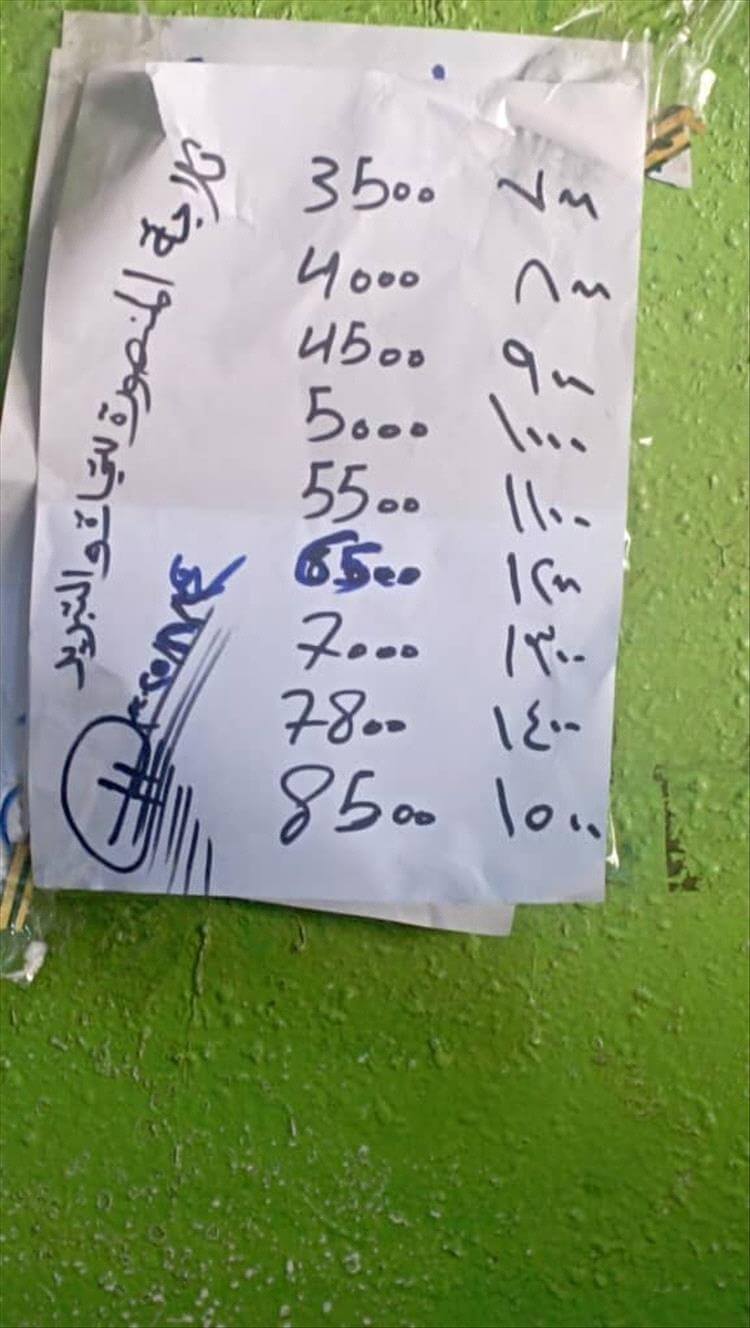 ثلاجة المنصورة والتبريد
3500 ٧٠٠
4000 ٨٠٠
4500 ٩٠٠
5000 ١٠٠٠
5500 ١١٠٠
6500 ١٢٠٠
7000 ١٣٠٠
7800 ١٤٠٠
8500 ١٥٠٠